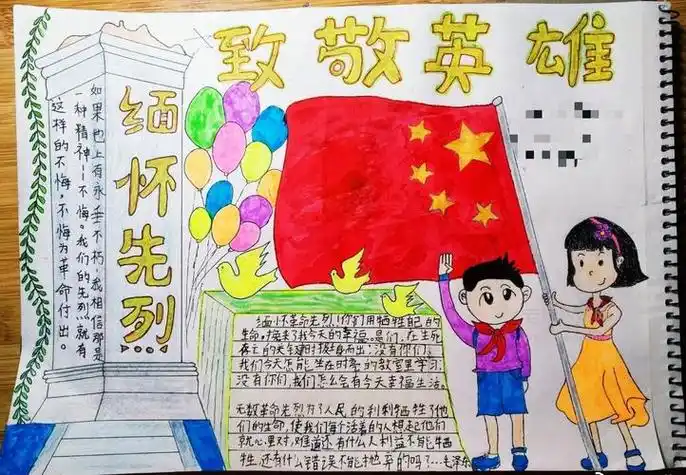 致敬英雄
缅怀先烈
如果地上有永垂不朽,我相信那是
一种精神——不悔。我们的先烈就有
这样的不悔,不悔为革命付出。
缅怀革命先烈!你们用牺牲自己的
生命,换来了我今天的幸福。是们,在生死
没有你们,
我们今天怎能坐在时亮的教室里学习,
没有你们,我们怎么会有今天幸福生活。
无数革命先烈为了人民的利利牺牲了他
们的生命,使我们每个活着的人想起他们
就心里对,难道还有什么人利益不能牺
牲,还有什么错误不能抛弃的吗?...毛泽东